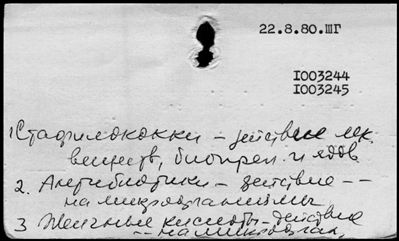 22.8.80.ШГ
I003244
I003245
1 Стафилококки - действие лек.
веществ, биопреп. и ядов
2. Антибиотики - действие --
на микроорганизмы
3 Желчные кислоты - действие
-- на микроорган.